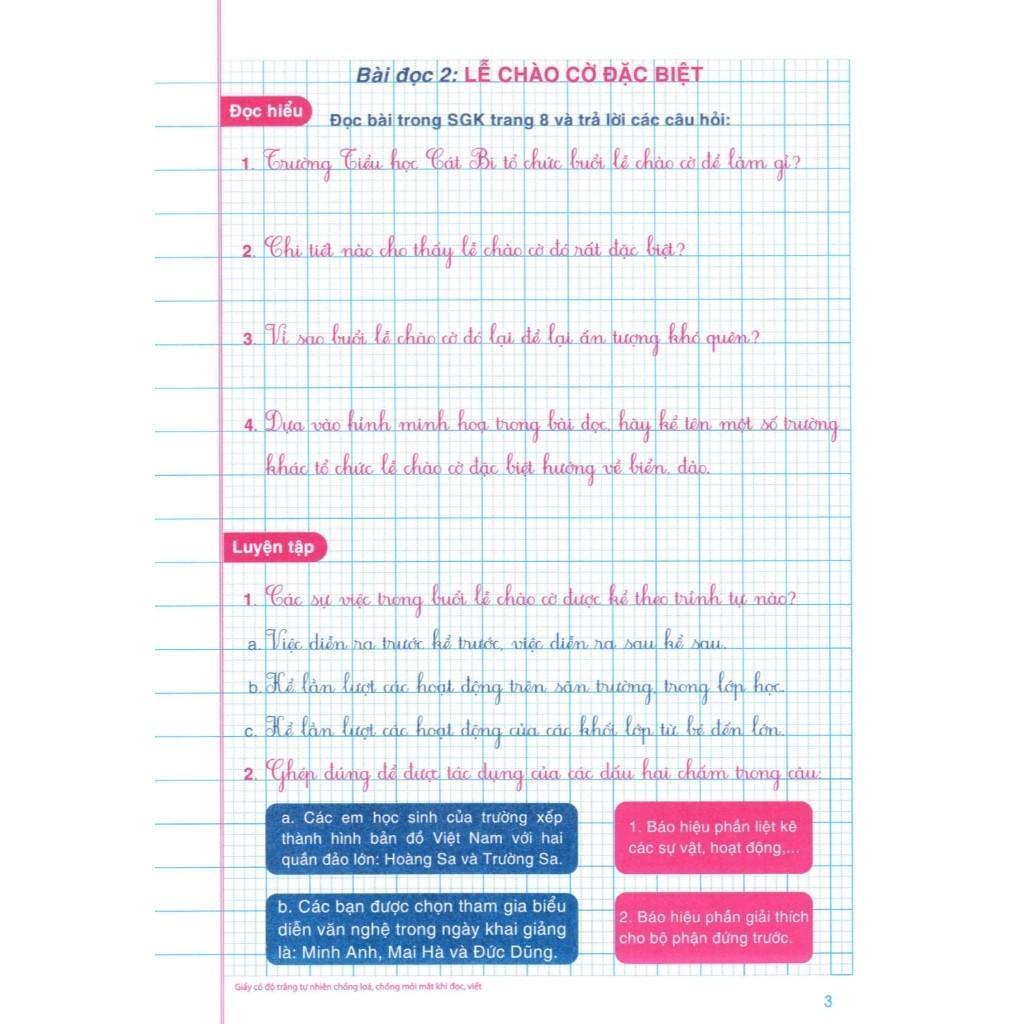 Bài đọc 2: LỄ CHÀO CỜ ĐẶC BIỆT
Đọc hiểu
Đọc bài trong SGK trang 8 và trả lời các câu hỏi:
1. Trường Tiểu học Cát Bi tổ chức buổi lễ chào cờ để làm gì?
2. Chi tiết nào cho thấy lễ chào cờ đó rất đặc biệt?
3. Vì sao buổi lễ chào cờ đó lại để lại ấn tượng khó quên?
4. Dựa vào hình minh hoạ trong bài đọc, hãy kể tên một số trường
khác tổ chức lễ chào cờ đặc biệt hướng về biển, đảo.
Luyện tập
1. Các sự việc trong buổi lễ chào cờ được kể theo trình tự nào?
a. Việc diễn ra trước kể trước, việc diễn ra sau kể sau.
b. Kể lần lượt các hoạt động trên sân trường, trong lớp học.
c. Kể lần lượt các hoạt động của các khối lớp từ bé đến lớn.
2. Ghép đúng để được tác dụng của các dấu hai chấm trong câu:
a. Các em học sinh của trường xếp
thành hình bản đồ Việt Nam với hai
quần đảo lớn: Hoàng Sa và Trường Sa.
1. Báo hiệu phần liệt kê
các sự vật, hoạt động,...
b. Các bạn được chọn tham gia biểu
diễn văn nghệ trong ngày khai giảng
là: Minh Anh, Mai Hà và Đức Dũng.
2. Báo hiệu phần giải thích
cho bộ phận đứng trước.
Giấy có độ trắng tự nhiên chống loá, chống mỏi mắt khi đọc, viết
3